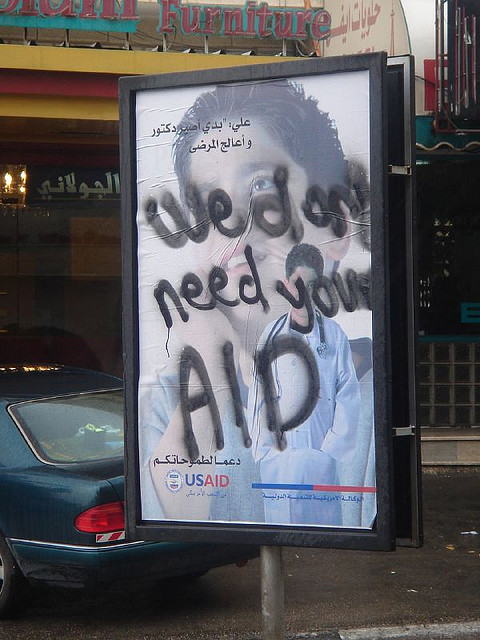 Furniture
حلويات
الجولاني
علي: "بدي أصير دكتور
وأعالج المرضى
we don
need your
AID
دعما لطموحاتكم
USAID
من الشعب الأمريكي
الوكالة الامريكية للتنمية الدولية